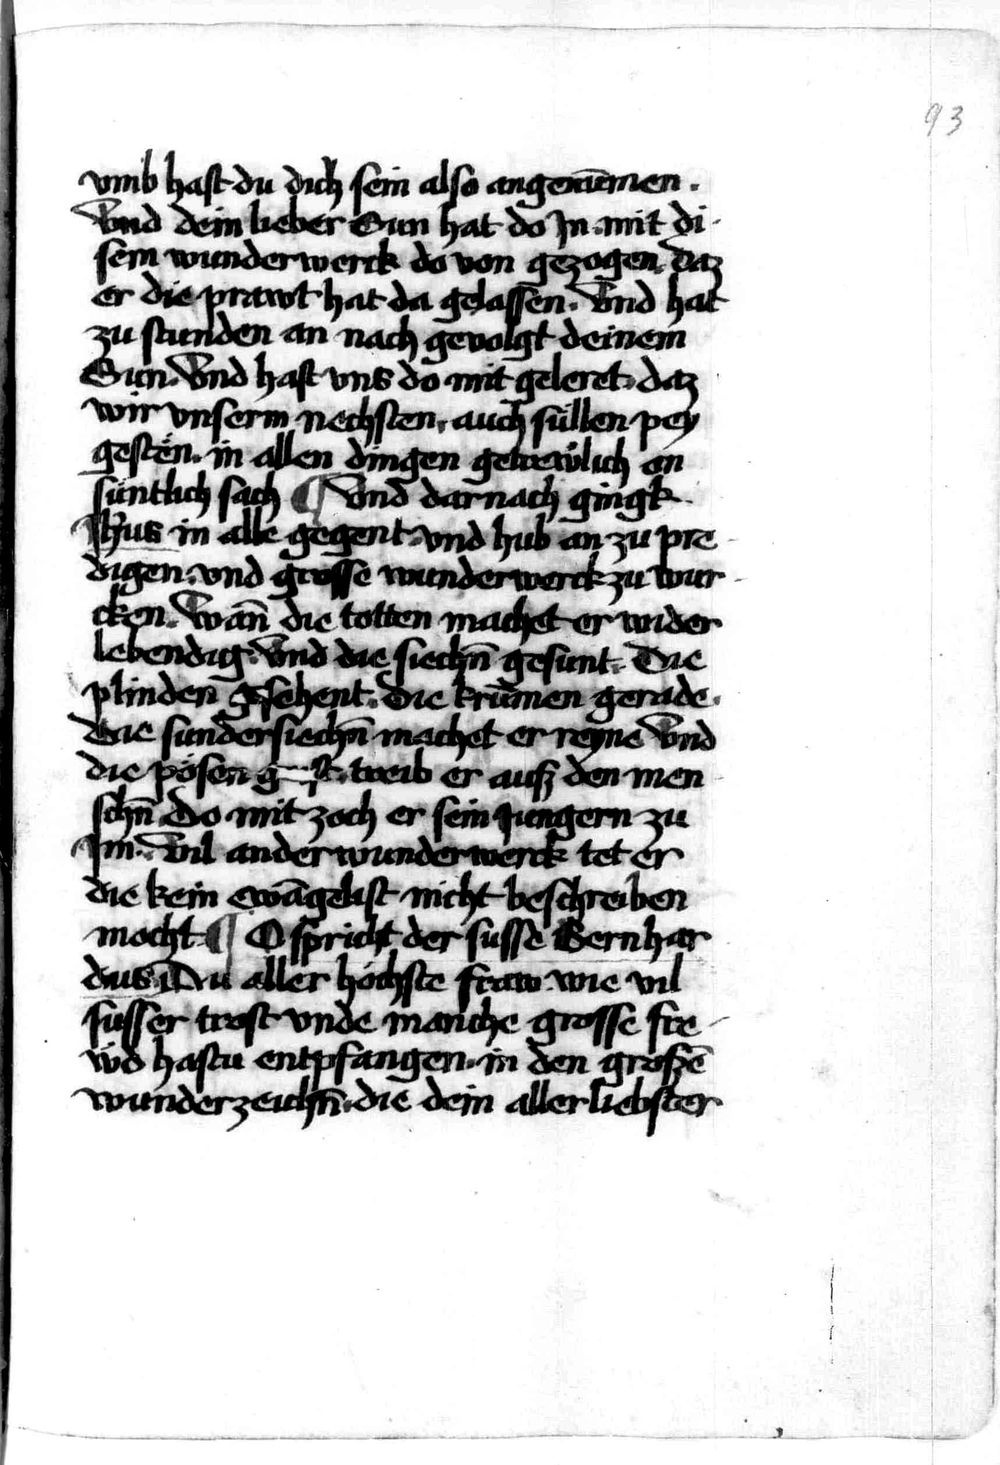 93
vmb hast du dich sein also angenūmen.
Vnd dein lieber Sun hat do Jn. mit di-
sem wunderwerck do von gezogen. daz
er die prawt hat da gelassen. Vnd hat
zu stunden an nach gevolgt deinem
Sun. Vnd hast vns do mit geleret. daz
wir vnserm nechsten. auch süllen pey
gesten. in allen dingen getrewlich an
süntlich sach ¶ Vnd darnach gingk
Jhūs in alle gegent. vnd hub an zu pre-
digen. vnd grosse wunderwerck zu wur-
cken. Wañ die totten machet er wider
lebendig. Vnd die siechñ gesunt. Die
plinden gesehent. Die krūmen gerade.
Die sundersiechñ machet er reyne Vnd
die pösen treib er auß den men-
schñ. Do mit zoch er sein Jungern zu
Jm. Vil ander wunderwerck tet er
die kein ewāgelist nicht beschreiben
mocht. ¶ O spricht der susse Bernhar
dus. Du aller höchste fraw. wie vil
susser trost vnde manche grosse fre-
wd hastu entpfangen. in den großē
wunderzeichñ. die dein allerliebster